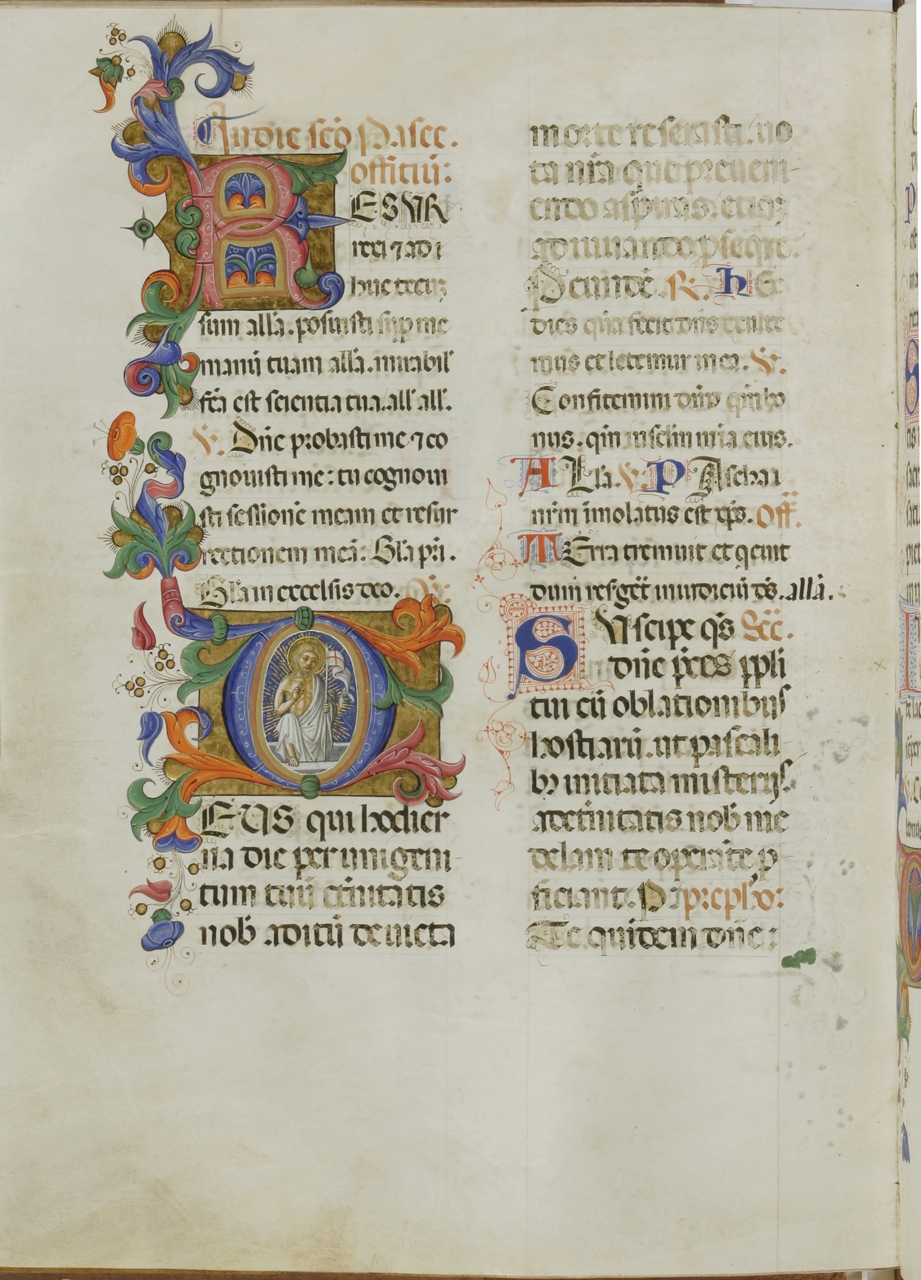 In die sc̄o Pasce.
offitiū:
RESVR
rexi ⁊ adi
huc tecū
sum all'a. posuisti sup me
manū tuam all'a. mirabil'
fc̄a est scientia tua. all' all'.
V. Dn̄e probasti me ⁊ co
gnouisti me: tu cognoui
sti sessionē meam et resur
rectionem meā: Gl'a pr̄i.
Gl'a in excelsis deo. Or̄:
DEUS qui hodier
na die per unigeni
tum tuū et̄nitatis
nob̄ aditū deuicta
morte reserasti. uo
ta nr̄a que preueni-
endo aspiras. etiaʒ
adiuuando ꝓseq̄re.
Per eundē. R. HEc
dies quā fecit dn̄s exulte
mus et letemur in ea. V.
Confitemini dn̄o qm̄ bo
nus. qm̄ in sc̄lm mi̅a eius.
ALl'a. V. PAscha
nr̄m īmolatus est xp̄s. Off.
TErra tremuit et q̄euit
dum resḡēt in iudiciū d̄s. all'a.
SVscipe q̄s Sēc.
dn̄e p̄ces ppl̄i
tui cū oblationibus
hostiarū. ut pascali
bꝫ initiata misterijs.
ad et̄nitatis nob̄ me
delam te operāte ꝑ
ficiant. P. prephō:
Te quidem dn̄e: